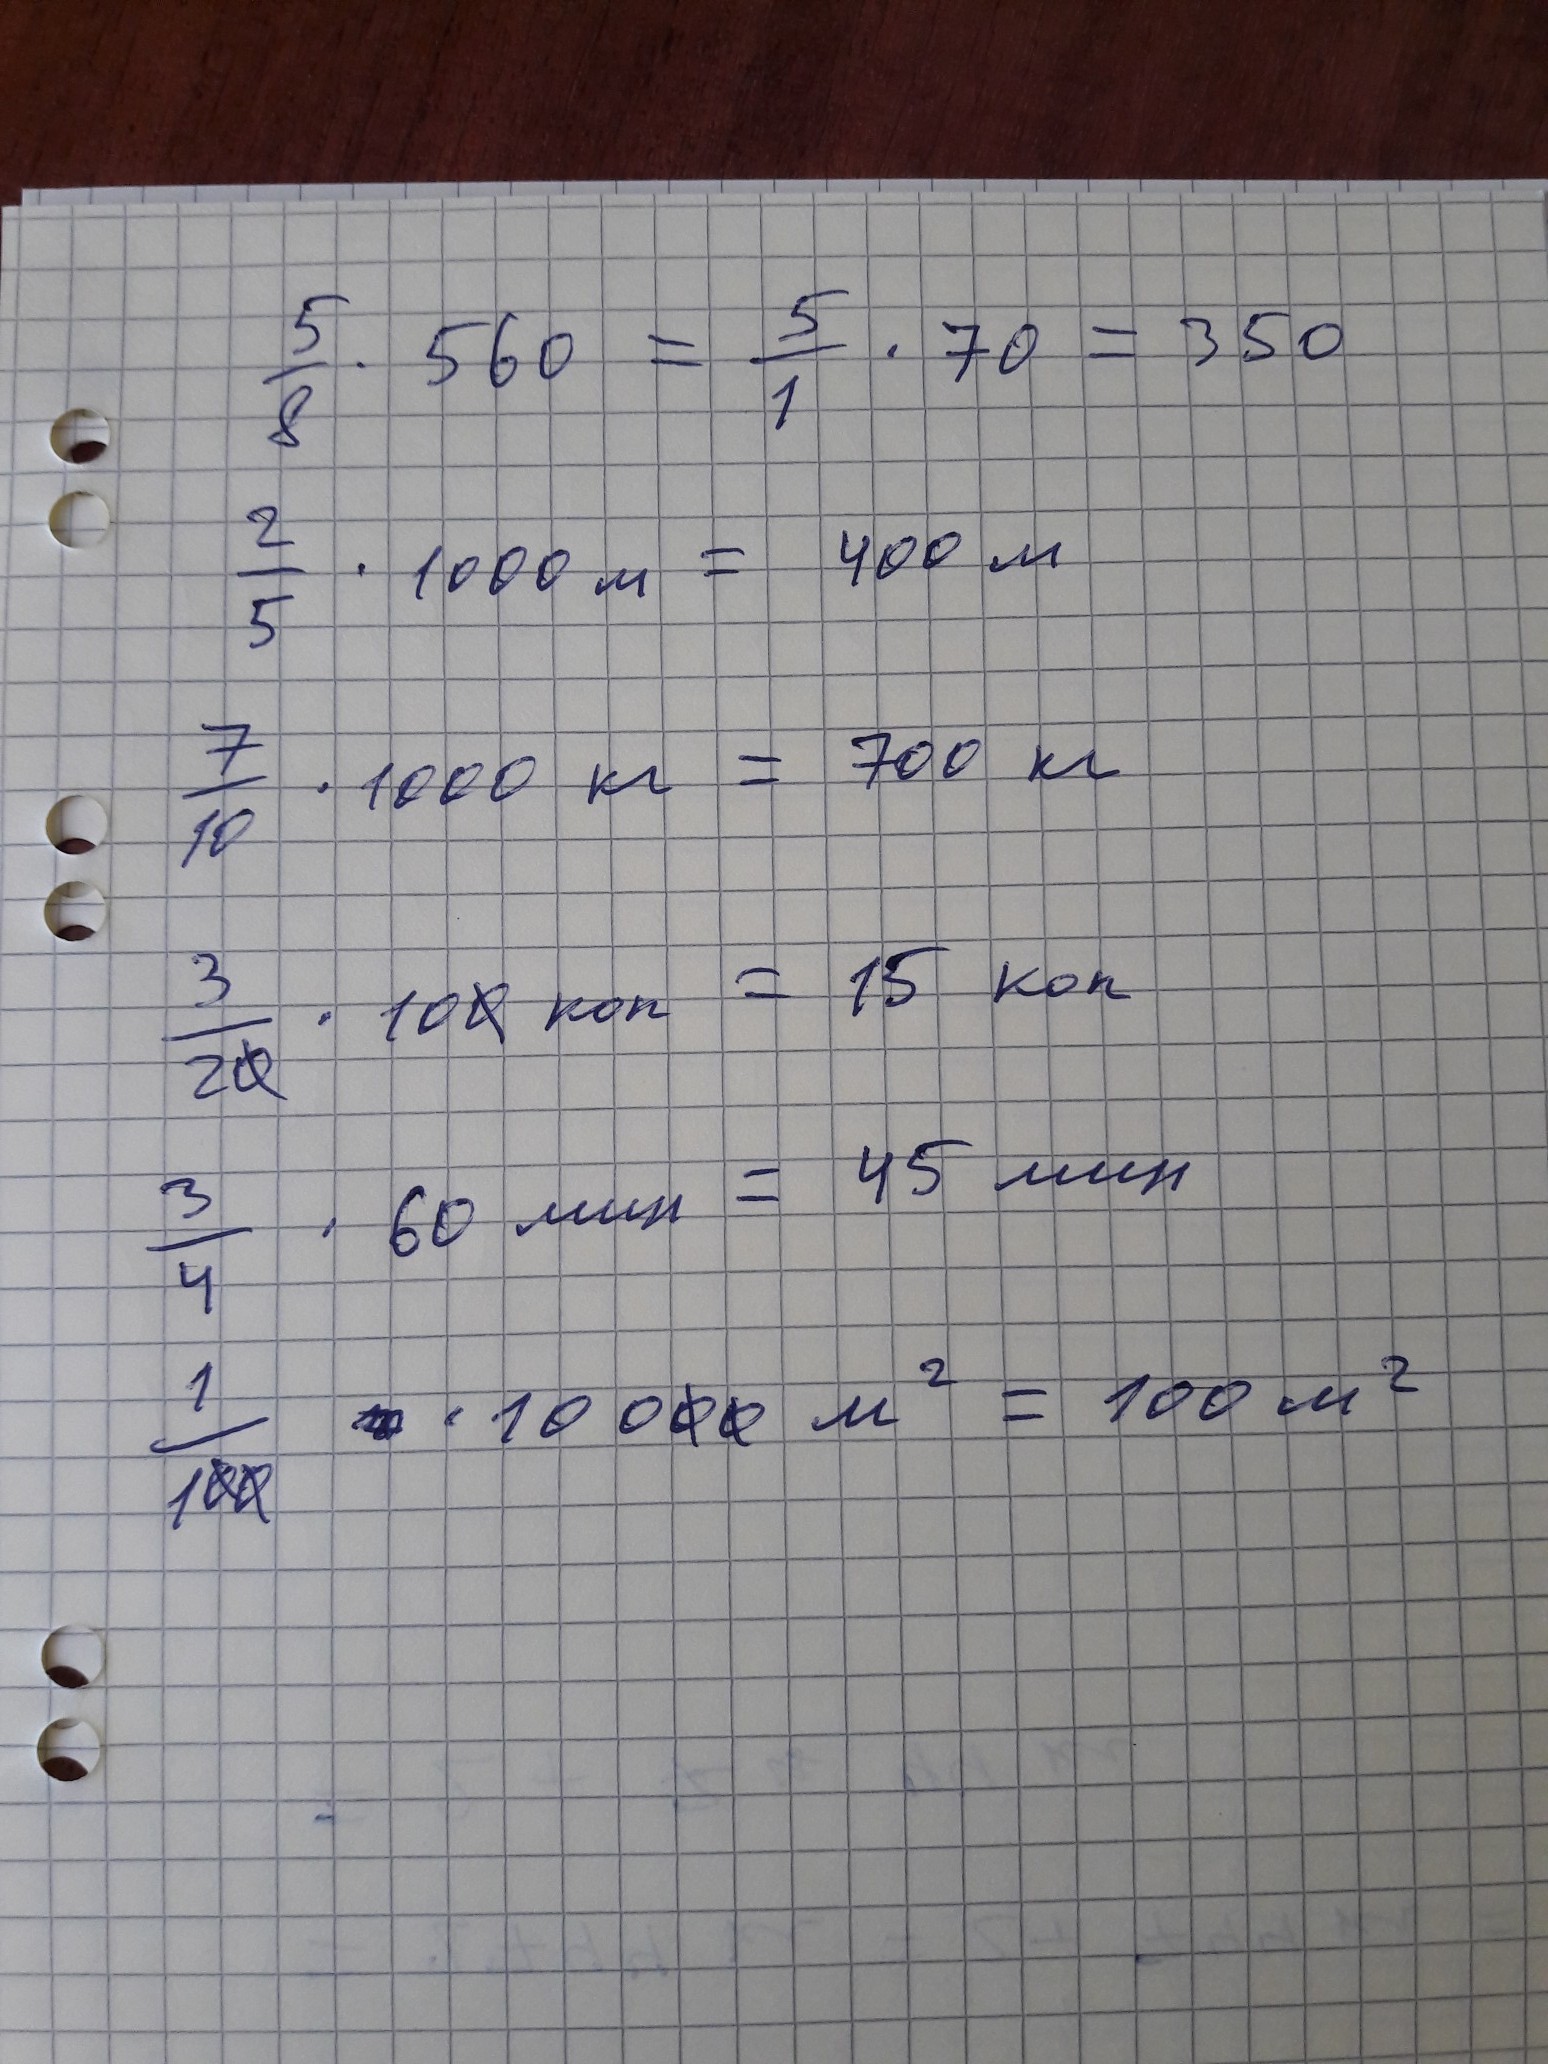 5/8 · 560 = 5/1 · 70 = 350
2/5 · 1000 м = 400 м
7/10 · 1000 кг = 700 кг
3/20 · 100 коп = 15 коп
3/4 · 60 мин = 45 мин
1/100 · 10 000 м² = 100 м²